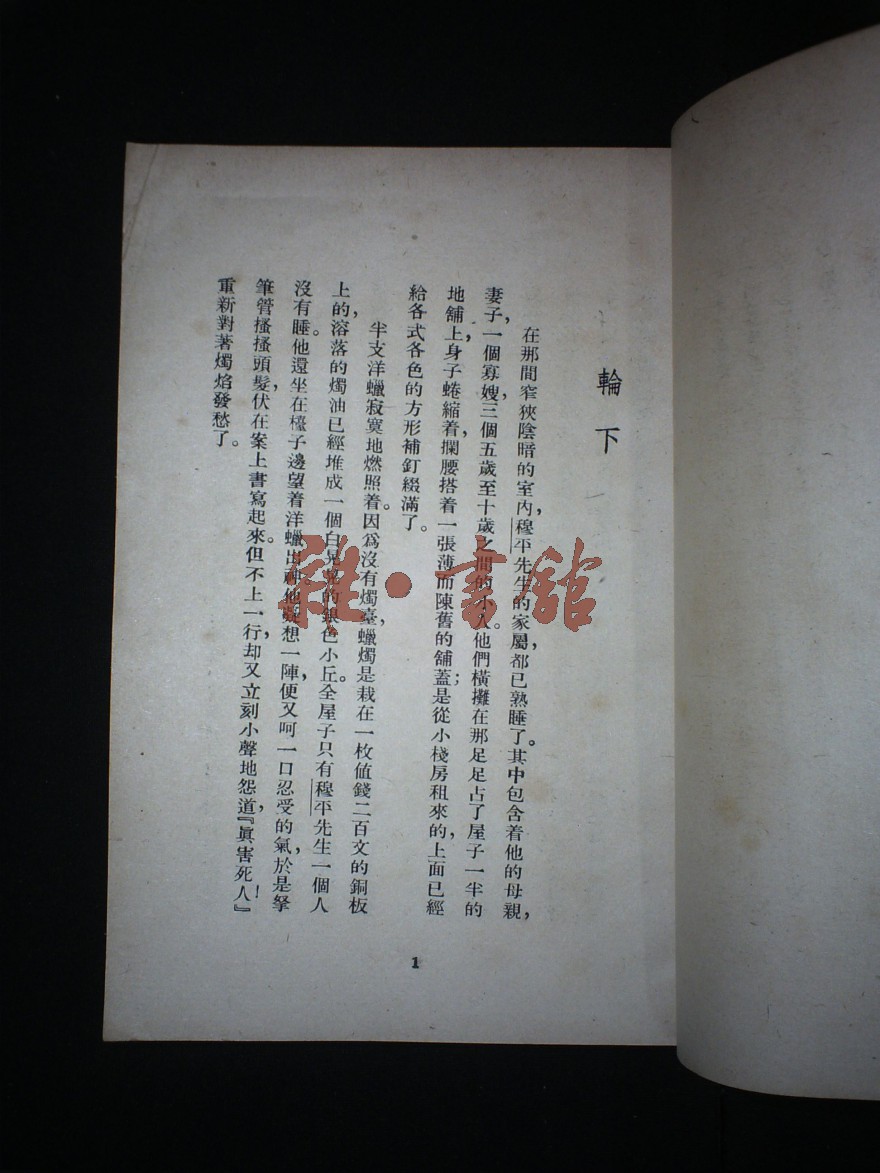 輪下
在那間窄狹陰暗的室內，穆平先生的家屬都已熟睡了。其中包含着他的母親，
妻子，一個寡嫂，三個五歲至十歲之間的小人。他們橫攤在那足足占了屋子一半的
地舖上，身子蜷縮着，攔腰搭着一張薄而陳舊的舖蓋；是從小棧房租來的，上面已經
給各式各色的方形補釘綴滿了。
半支洋蠟寂寞地燃照着。因爲沒有燭臺，蠟燭是栽在一枚值錢二百文的銅板
上的，溶落的燭油已經堆成一個白晃晃的銀色小丘。全屋子只有穆平先生一個人
沒有睡。他還坐在檯子邊望着洋蠟出神。他凝想一陣，便又呵一口忍受的氣，於是拏
筆管搔搔頭髮，伏在案上書寫起來。但不上一行，却又立刻小聲地怨道，『眞害死人！』
重新對著燭焰發愁了。
1
雜·書館